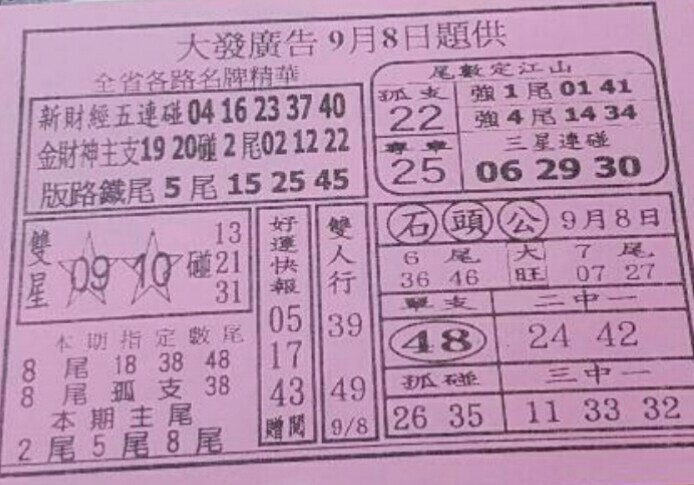 大發廣告9月8日題供
全省各路名牌精華
新財經五連碰 04 16 23 37 40
金財神主支 19 20 碰 2 尾 02 12 22
版路鐵尾 5 尾 15 25 45
尾數定江山
孤支
22
強 1 尾 01 41
強 4 尾 14 34
專車
25
三星連碰
06 29 30
雙星
09 10 碰
13
21
31
本期指定數尾
8 尾 18 38 48
8 尾 孤支 38
本期主尾
2 尾 5 尾 8 尾
好運快報
05
17
43
贈閱
雙人行
39
49
9/8
石頭公 9月8日
6 尾
36 46
大旺
7 尾
07 27
單支
48
二中一
24 42
孤碰
26 35
三中一
11 33 32